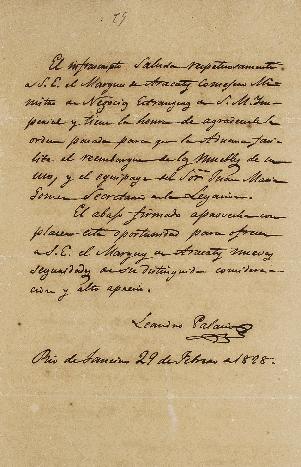 El infrascripto Saluda respetuosamente
a S. E. el Marques de Aracaty Consejero Mi-
nistro de Negocios Estrangeros de S. M. Im-
perial y tiene la honra de agradecerle la
orden pasada para que la Aduana faci-
lite el reembarque de los muebles de su
uso, y el equipage del Sõr Juan Maria
Gomez Secretario de la Legacion.
El abajo firmado aprovecha con
placer esta oportunidad para ofrecer
a S. E. el Marques de Aracaty nuevas
seguridades de su distinguida considera-
cion y alto aprecio.
Leandro Palacios
Rio de Janeiro 29 de Febrero de 1828.